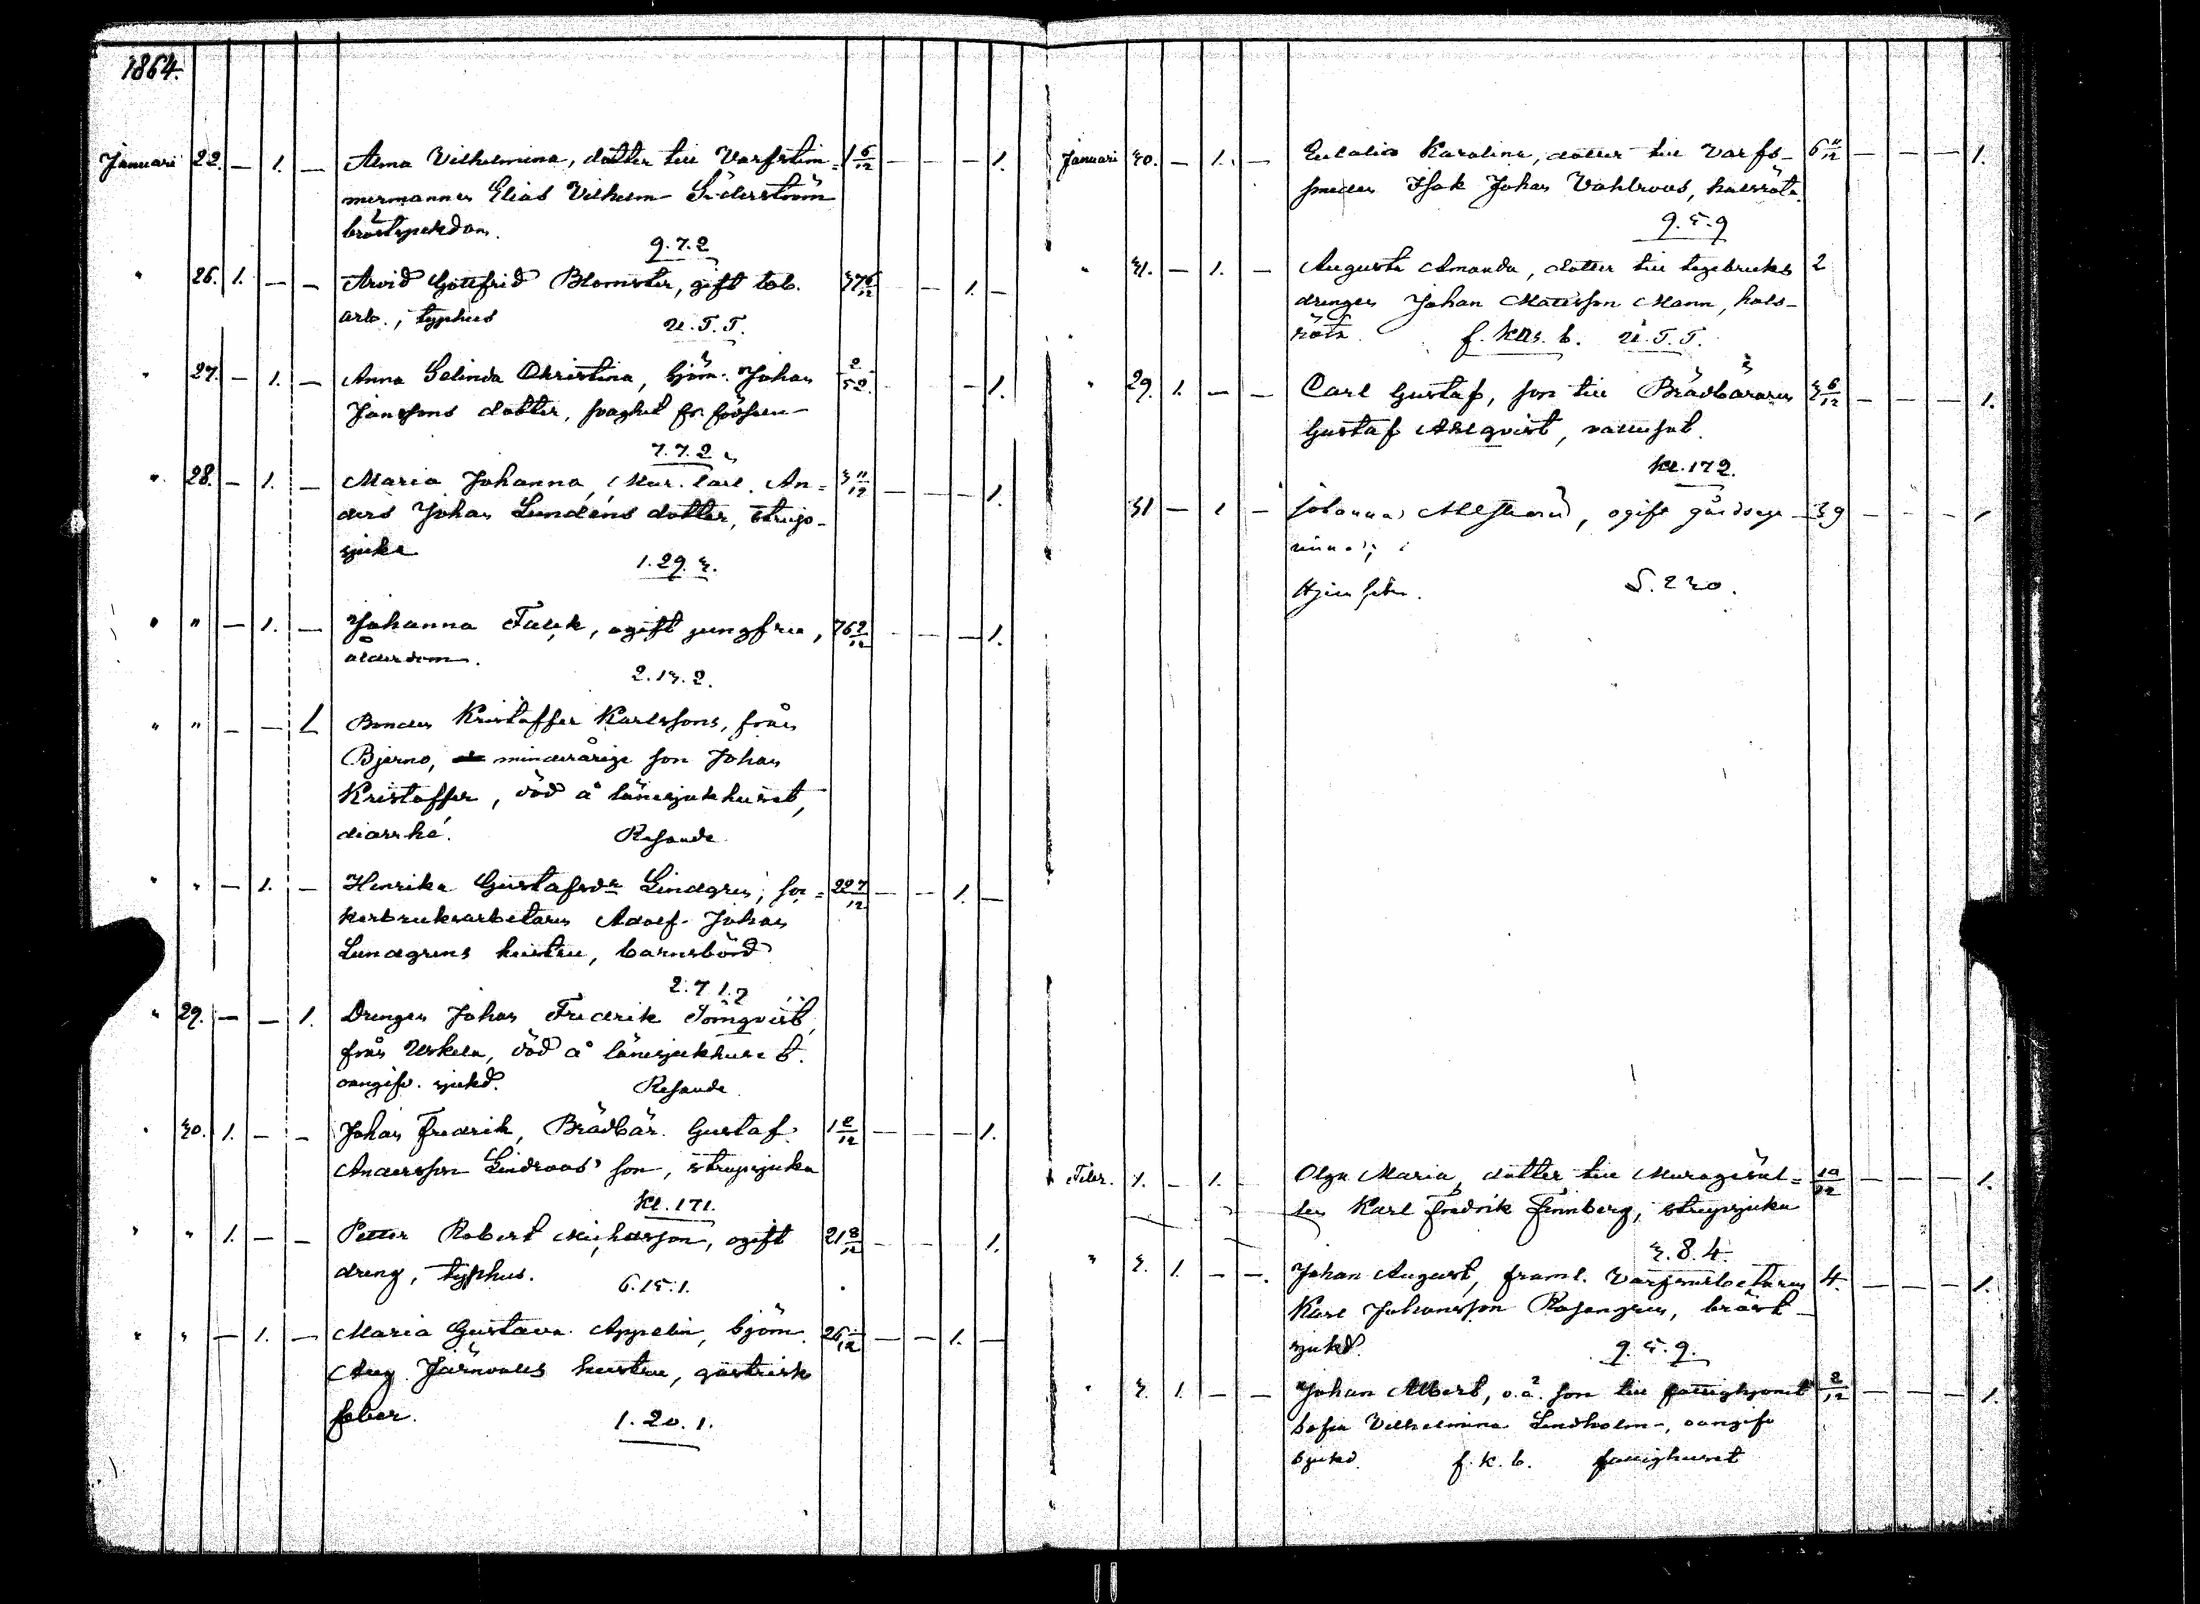 1864.
Januari 22. — 1. — Alma Vilhelmina, dotter till Varfstim= 1 6/12 — — — 1.
mermannen Elias Vilhelm Söderström
bröstsjukdom.
9.7.2
" 26. 1. — — Arvid Gottfrid Blomster, gift tob. 37 6/12 — 1. —
arb., typhus
U.T.T.
" 27. — 1. — Anna Selinda Christina, bjöm. Johan 2/52 — 1.
Janssons dotter, svaghet fr. födseln
7.7.2
" 28. — 1. — Maria Johanna, Mur. lärl. An= 3 11/12 — — — 1.
ders Johan Lundéns dotter, strup-
sjuka
1.29.3.
" " — 1. — Johanna Falck, ogift jungfru, 76 2/12 — — — 1.
ålderdom.
2.13.2.
" " — — 1 Bonden Kristoffer Karlssons, från
Bjerno, minderårige son Johan
Kristoffer, död å länesjukhuset,
diarrhé. Resande
" " — 1. — Henrika Gustafsdr Lindgren, soc= 22 7/12 — — 1. —
kerbruksarbetaren Adolf Johan
Lundgrens hustru, barnsbörd
2.7 1.2
" 29. — — 1. Drengen Johan Fredrik Törnqvist,
från Uskela, död å länesjukhuset.
oangifv. sjukd. Resande
" 30. 1. — — Johan Fredrik, Brädbär. Gustaf 1 2/12 — — — 1.
Andersson Lindroos' son, strupsjuka
Kl. 171.
" " 1. — — Petter Robert Michelsson, ogift 21 8/12 — — 1.
dreng, typhus. 6.15.1.
" " — 1. — Maria Gustava Appelin, bjöm. 26 /12 — — 1. —
Aug. Järnvalls hustru, gastrisk
feber. 1.20.1.
Januari 30. — 1. — Eulalia Karolina, dotter till Varfs- 6 11/12 — — — 1.
smeden Isak Johan Vahlroos, halsröta.
9.5.9
" 31. — 1. — Augusta Amanda, dotter till tegelbruks 2
drengen Johan Matsson Mann, hals-
röta. f. kas. b. U.T.T.
" 29. 1. — — Carl Gustaf, son till Brädbäraren 3 6/12 — — — 1.
Gustaf Ahlqvist, vattusot.
Kl. 172.
31 — 1 — Johanna, ogift gårdsege- 39 — — — 1
rinna,
S. 230.
Febr. 1. — 1. Olga Maria, dotter till Muragesäl= 10/12 — — — 1.
len Karl Fredrik Finnberg, strupsjuka
3.8.4
" 3. 1. — —. Johan August, framl. Varfsarbetaren 4. — — — 1.
Karl Johansson Rosengren, bröst-
sjukd. 9.5.9.
" 3. 1. — — Johan Albert, o.ä. son till fattighjonet 2/12 — — — 1.
Sofia Vilhelmina Lindholm, oangifv
sjukd. f.k.b. fattighuset